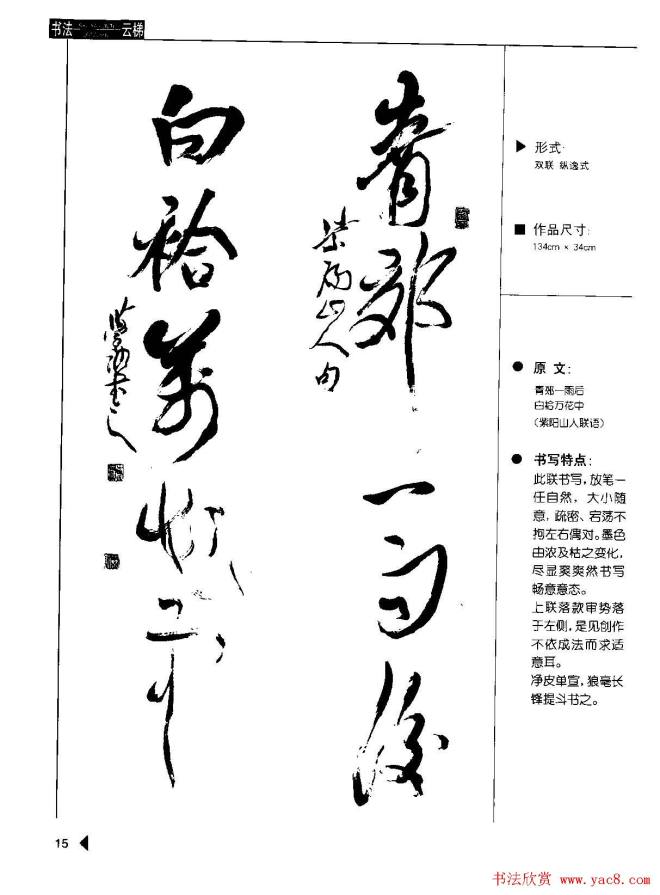 书法
云梯
青郊一雨後
紫陽山人句
白袷萬花中
▶ 形式:
双联 纵逸式
■ 作品尺寸:
134cm × 34cm
● 原 文:
青郊一雨后
白袷万花中
(紫阳山人联语)
● 书写特点:
此联书写,放笔一
任自然,大小随
意,疏密、宕荡不
拘左右偶对。墨色
由浓及枯之变化,
尽显爽爽然书写
畅意意态。
上联落款审势落
于左侧,是见创作
不依成法而求适
意耳。
净皮单宣,狼毫长
锋提斗书之。
15 ◀
书法欣赏 www.yac8.com